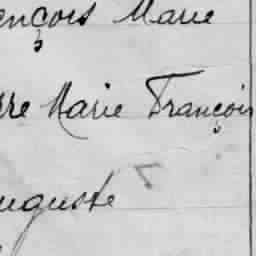 ençois Marie
rre Marie François
uguste